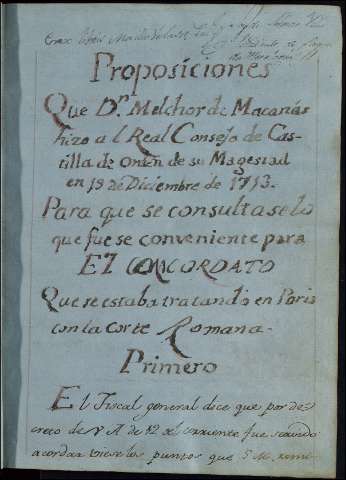 Proposiciones
Que Dn. Melchor de Macanás
hizo al Real Consejo de Cas-
tilla de orden de su Magestad
en 19 de Diciembre de 1713.
Para que se consultase lo
que fuese conveniente para
El CONCORDATO
Que se estaba tratando en Paris
con la Corte Romana.
Primero
El Fiscal general dice que por de-
creto de V A de 12 del corriente fue servido
acordar viese los puntos que S. M. remi-